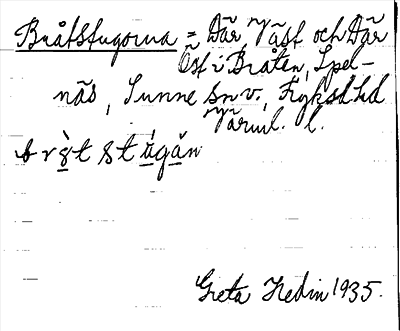 Bråtstugorna = Där Väst och Där
Öst i Bråten, Spel-
näs, Sunne sn v., Fryksd. hd
Värml. l.
brὸ̤t stụ́gǎn
Greta Hedin 1935.